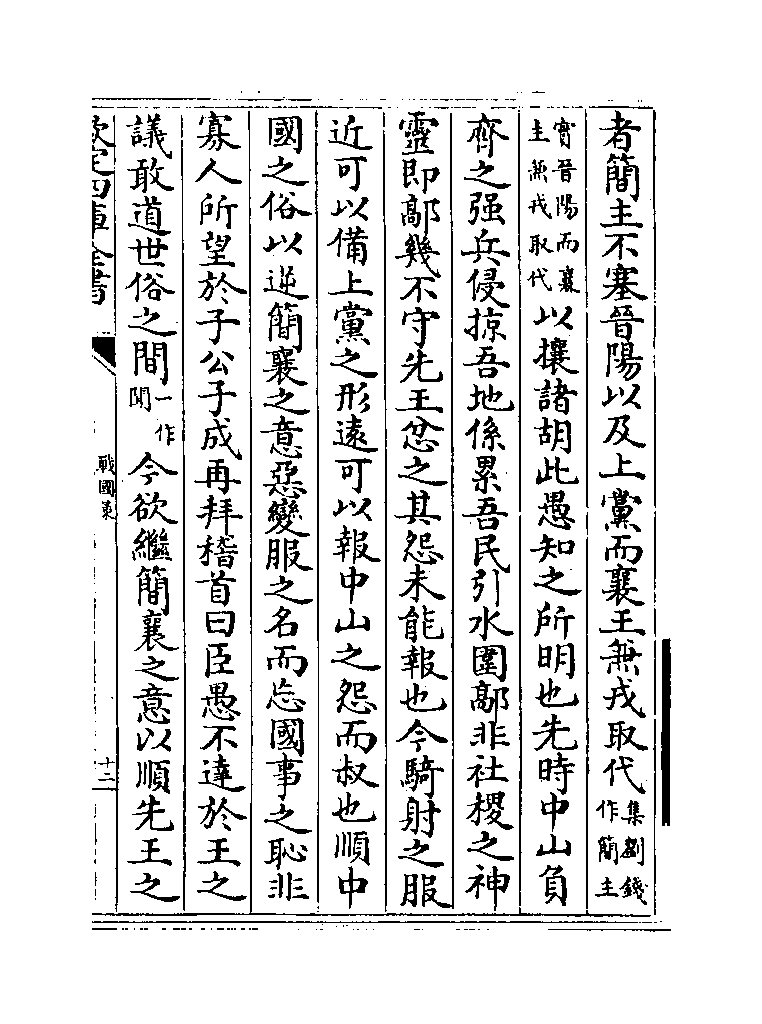 者簡主不塞晉陽以及上黨而襄王兼戎取代集劉錢作簡主
實晉陽而襄主兼戎取代以攘諸胡此愚知之所明也先時中山負
齊之强兵侵掠吾地係累吾民引水圍鄗非社稷之神
靈即鄗幾不守先王忿之其怨未能報也今騎射之服
近可以備上黨之形遠可以報中山之怨而叔也順中
國之俗以逆簡襄之意惡變服之名而忘國事之恥非
寡人所望於子公子成再拜稽首曰臣愚不達於王之
議敢道世俗之間一作聞今欲繼簡襄之意以順先王之
欽定四庫全書
戰國策
十二